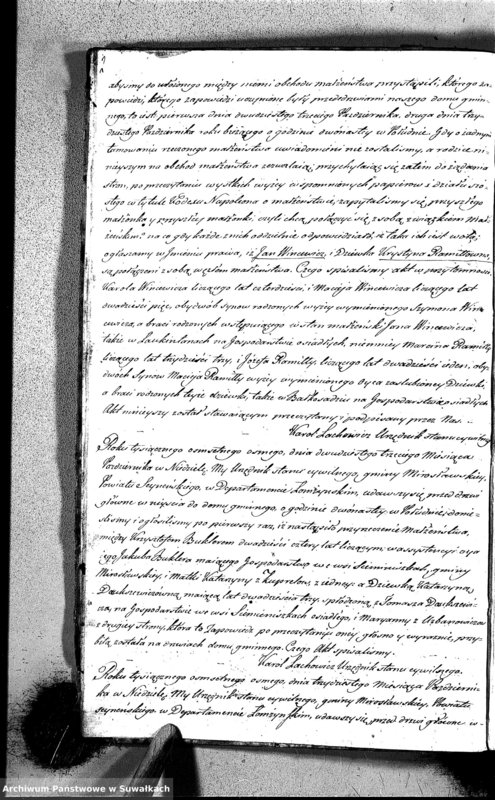 abyśmy do ułożonego między niemi obchodu małżeństwa przystąpili, którego za-
powiedzi, którego zapowiedzi uczynione były przed drzwiami naszego domu gmin-
nego, to iest pierwsza dnia dwudziestego trzeciego Października, druga dnia trzy-
dziestego Października roku bieżącego o godzinie dwónastéy w Południe. Gdy o żadnym
tamowaniu rzeczonego małżeństwa uwiadomieni nie zostaliśmy, a rodzice ni-
nieyszym na obchod małżeństwa zezwalaią, przychylaiąc się zatem do żądania
stron, po przeczytaniu wszystkich wyżey wspomnianych papierow i działu szó-
stego w tytule Kodexu Napoleona o małżeństwie, zapytaliśmy się przyszłego
małżonka y przyszłey małżonki, czyli chcą połączyć się z sobą związkiem mał-
żeńskim? na co gdy każde z nich oddzielnie odpowiedziało, iż taka ich iest wola;
ogłaszamy w Jmieniu prawa, iż Jan Wincewicz, i Dziewka Krystyna Ramiłłowna,
są połączeni z sobą węzłem małżeństwa. Czego spisaliśmy akt w przytomności
Karola Wincewicza liczącego lat czterdzieści, i Macieja Wincewicza liczącego lat
dwadzieścia pięc, obydwóh synow rodzonych wyżey wymienionego Szymona Win-
cewicza, a braci rodzonych wstępuiącego w stan małżeński Jana Wincewicza,
także w Laukintanach na Gospodarstwie osiadłych, niemniey Marcina Ramiłły
liczącego lat trzydzieści trzy, i Józefa Ramiłły, liczącego lat dwadzieścia ieden, oby-
dwóch Synow Macieja Ramiłły wyżey wymienionego oyca zaślubioney Dziewki,
a braci rodzonych teyże dziewki, także w na Gospodarstwie osiadłych
Akt ninieyszy został stawaiącym przeczytany i podpisany przez Nas.
Karol Lachowicz Urzędnik stanu cywilnego
Roku tysiącznego osmsetnego osmego, dnia dwudziestego trzeciego Miesiąca
Października w Niedzielę, My Urzędnik stanu cywilnego, gminy Mirosławskiey,
Powiatu Seynenskiego, w Departamencie Łomżynskim, udawszy się przed drzwi
główne w weyścia do domu gminnego, o godzinie dwónastéy w Południe, donie-
śliśmy i ogłosiliśmy po pierwszy raz, iż nastąpiło przyrzeczenie Małżeństwa,
między Krzysztofem Buklerem dwadzieścia cztery lat liczącym, w assystencyi oyca
swego Jakuba Buklera maiącego Gospodarstwo we wsi Siemieniszkach, gminy
Mirosławskiey, i Matki Katarzyny z z iedney, a Dziewką Katarzyną
Daukszewiczowną, maiącą lat dwadzieścia trzy, spłodzoną z Tomasza Daukszewi-
cza, na Gospodarstwie we wsi Siemieniszkach osiadłego, i Maryanny z Urbanowiczow
z drugiey strony, która to Zapowiedź po przeczytaniu oney głosno y wyraznie, przy-
bitą została na drzwiach domu gminnego. Czego Akt spisaliśmy.
Karol Lachowicz Urzędnik stanu cywilnego.
Roku tysiącznego osmsetnego osmego, dnia trzydziestego Miesiąca Październi-
ka w Niedzielę, My Urzędnik stanu cywilnego, gminy Mirosławskiey, Powiatu
Seynenskiego w Departamencie Łomżynskim, udawszy się przed drzwi głowne w-
Archiwum Państwowe w Suwałkach